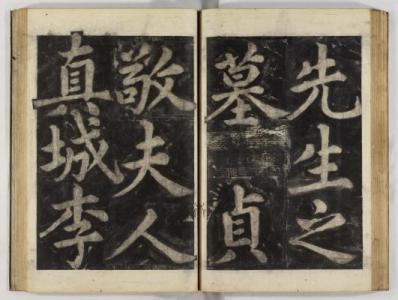 先生之
墓貞
敬夫人
真城李